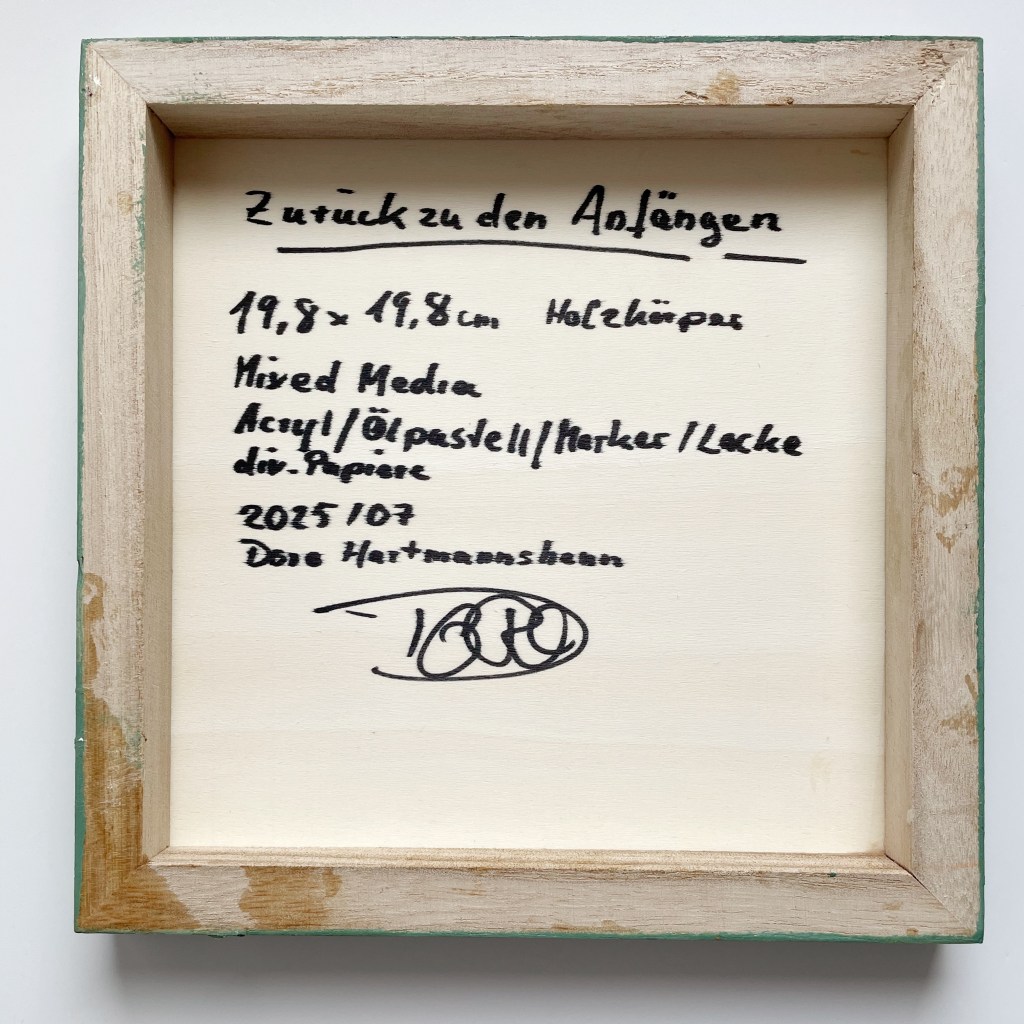 Zurück zu den Anfängen
19,8 x 19,8 cm Holzkörper
Mixed Media
Acryl/Ölpastell/Marker/Lacke
div. Papiere
2025/07
Dore Hartmannshenn